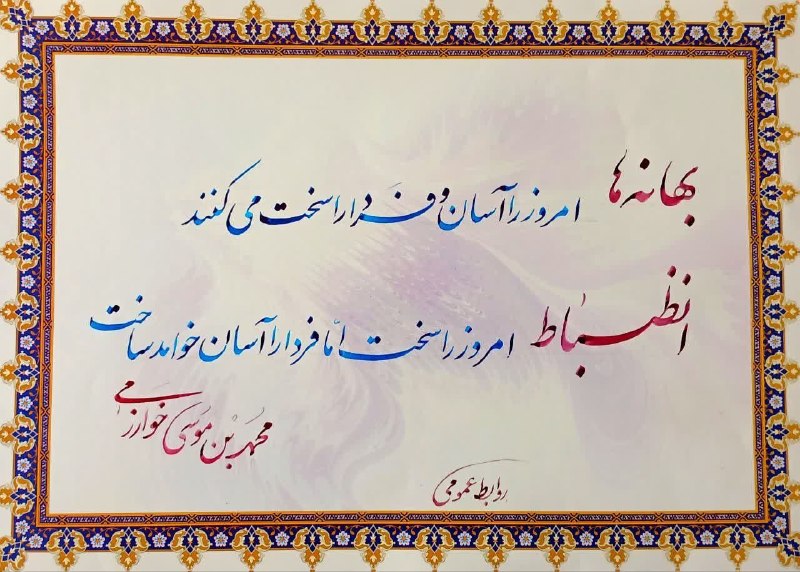 بهانه‌ها امروز را آسان و فردا را سخت می کنند
انظباط امروز را سخت امّا فردا را آسان خواهد ساخت
محمد بن موسی خوارزمی
روابط عمومی